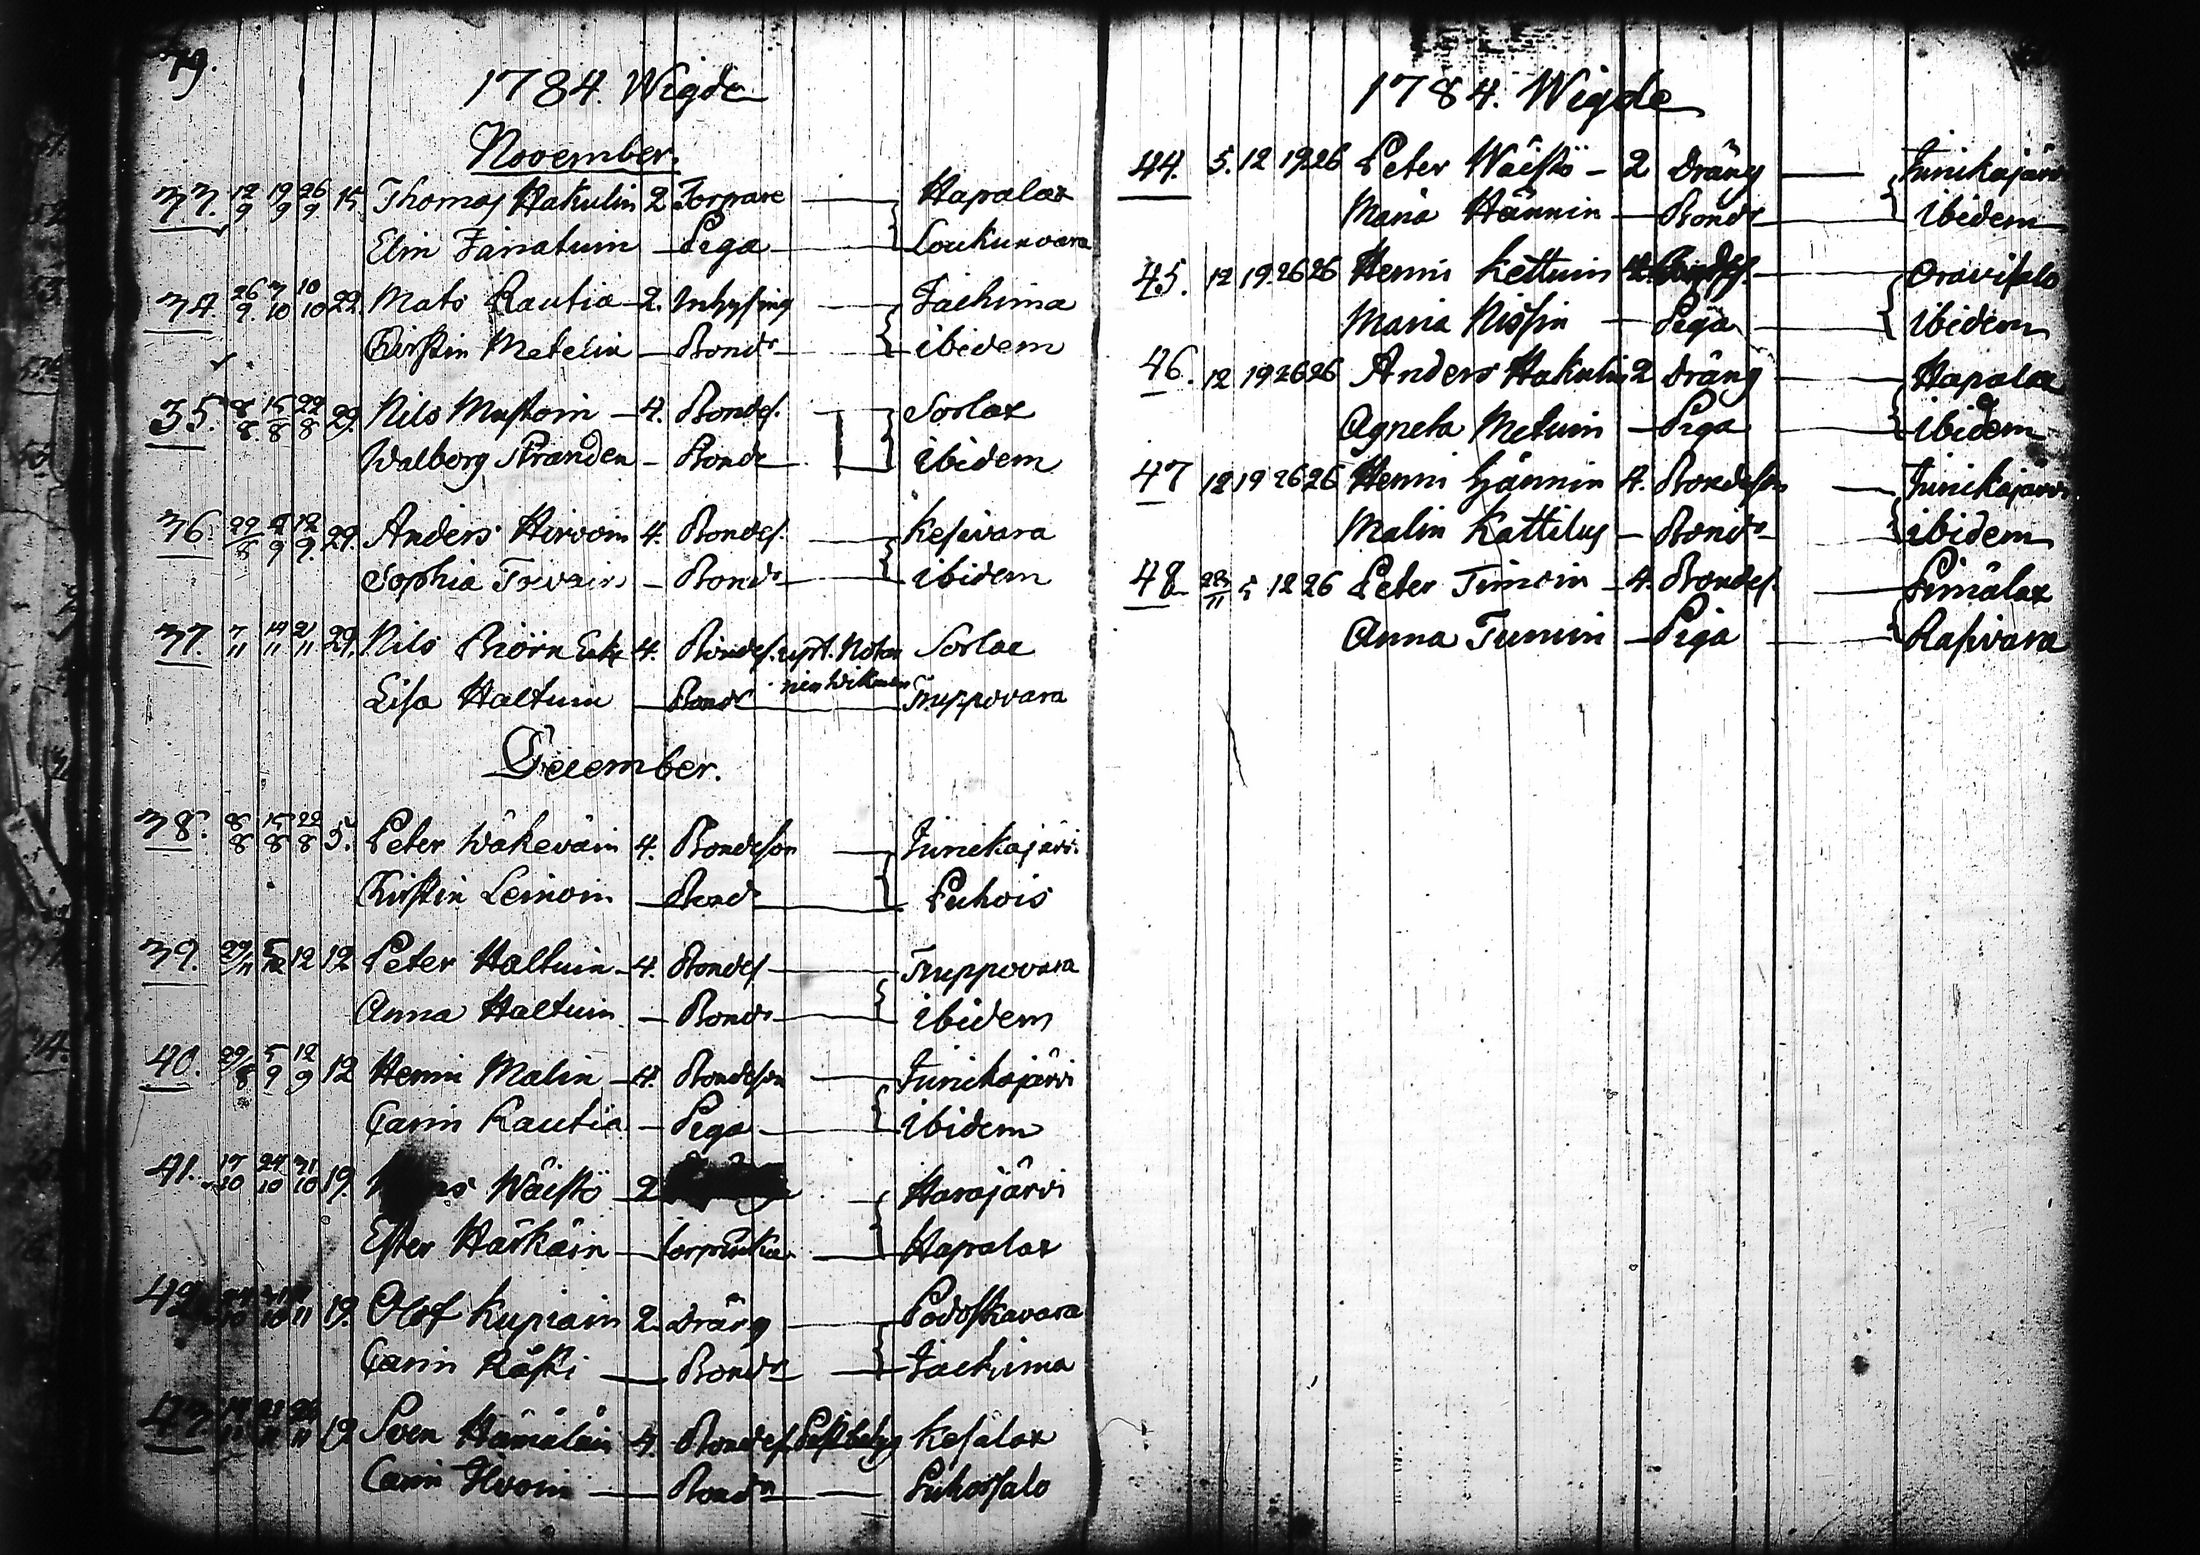 79.
1784. Wigde
November.
33. 12/9 19/9 26/9 15. Thomas Hakulin 2 Torpare Hapalax
Elin Painatuin Piga Loukunvara
34. 26/9. 3/10 10/10 22. Mats Rautia 2. Inhysing Jackima
Kirstin Metelin Bondr ibidem
35. 8/8. 15/8 22/8 29. Nils Mustoin 4. Bondes. Sorlax
Walborg Stranden Bondr ibidem
36. 29/8 5/9 12/9. 29. Anders Hirvoin 4. Bondes. Kesivara
Sophia Toivain Bondr ibidem
37. 7/11 14/11 21/11 29. Nils Björn 4. Bondes. Sorlax
Lisa Haltuin Bondr Truppovara
December.
38. 8/8 15/8 22/8 5. Peter Wäkeväin 4. Bondeson Junickajärvi
Kirstin Leinoin Bondr Puhois
39. 29/11 5/12 12 12 Peter Haltuin 4. Bondes Truppovara
Anna Haltuin Bondr ibidem
40. 29/8 5/9 12/9 12 Henri Malin 4. Bondeson Junickajärvi
Carin Rautia Piga ibidem
41. 17/10 24/10 31/10 19. Wäistö 2 Harajärvi
Ester Härkäin torpflicka Hapalax
42. 19. Olof Kupiain 2. Dräng Podoskavara
Carin Räski Bondr Jackima
43. 19. Sven Hämäläin 4. Bondes. Kesälax
Carin Hvoin Bondr Puhossalo
1784. Wigde
44. 5. 12 19 26 Peter Wäistö 2 Dräng Junickajärvi
Maria Hännin Bondr ibidem
45. 12 19. 26 26 Henri Kettuin Oravisalo
Maria Nissin Piga ibidem
46. 12 19 26 26 Anders Hakulin 2 Dräng Hapalax
Agneta Metuin Piga ibidem
47 12 19 26 26 Henri Hännin 4. Bondeson Junickajärvi
Malin Kattilus Bondr ibidem
48 28/11 5 12 26 Peter Timoin 4. Bondes. Pimälax
Anna Tunuin Piga Rasivara